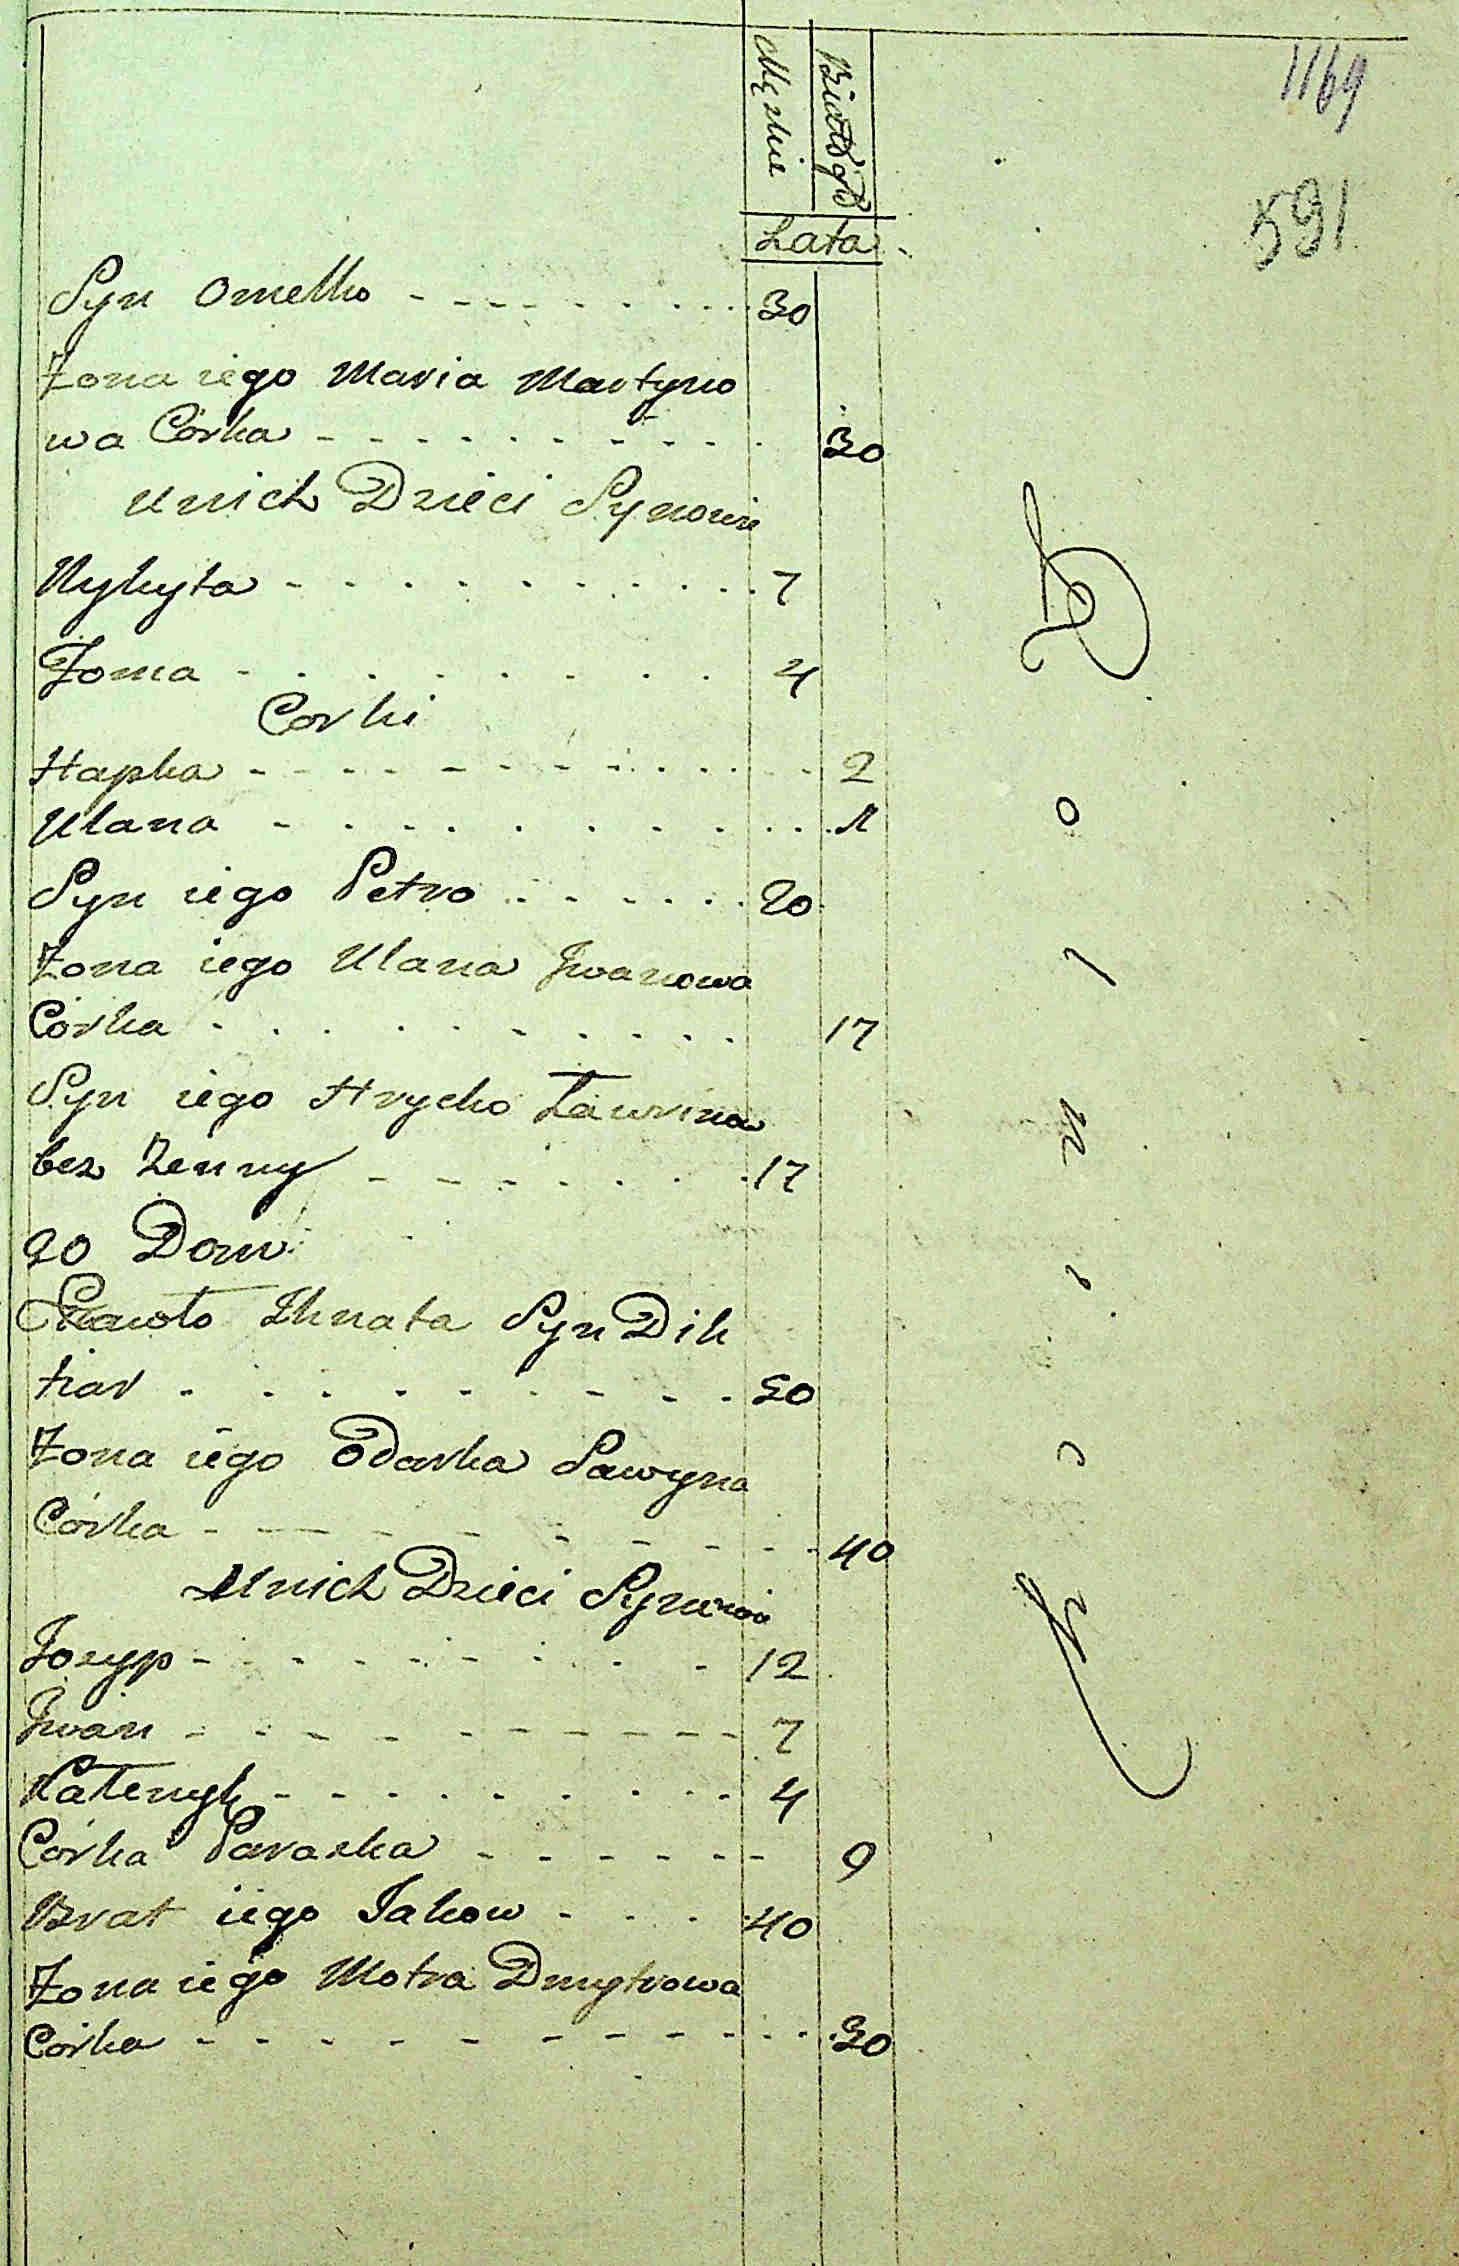 1169
591
Męskie
Białogł
Lata
Syn Omelko - - - - - - - - 30
Żona iego Maria Martyno
wa Córka - - - - - - - - - - 30
Unich Dzieci Synowie
Mykyta - - - - - - - - - - 7
Foma - - - - - - - - 4
Corki
Hapka - - - - - - - - - - - 2
Ulana - - - - - - - - - - 1
Syn iego Petro - - - - - - 20
Żona iego Ulana Jwanowa
Córka - - - - - - - - - 17
Syn iego Hrycko
bez Zenny - - - - - - - 17
20 Dom
Pawło Ihnata Syn Dih
tiar - - - - - - - - - 50
Żona iego Odarka Sawyna
Córka - - - - - - - - - - 40
Unich Dzieci Synowie
Josyp - - - - - - - - - 12
Jwan - - - - - - - - - - 7
- - - - - - - - - 4
Córka Paraska - - - - - - 9
Brat iego Jakow - - - - 40
Żona iego Motra Dmytrowa
Córka - - - - - - - - - - - 30